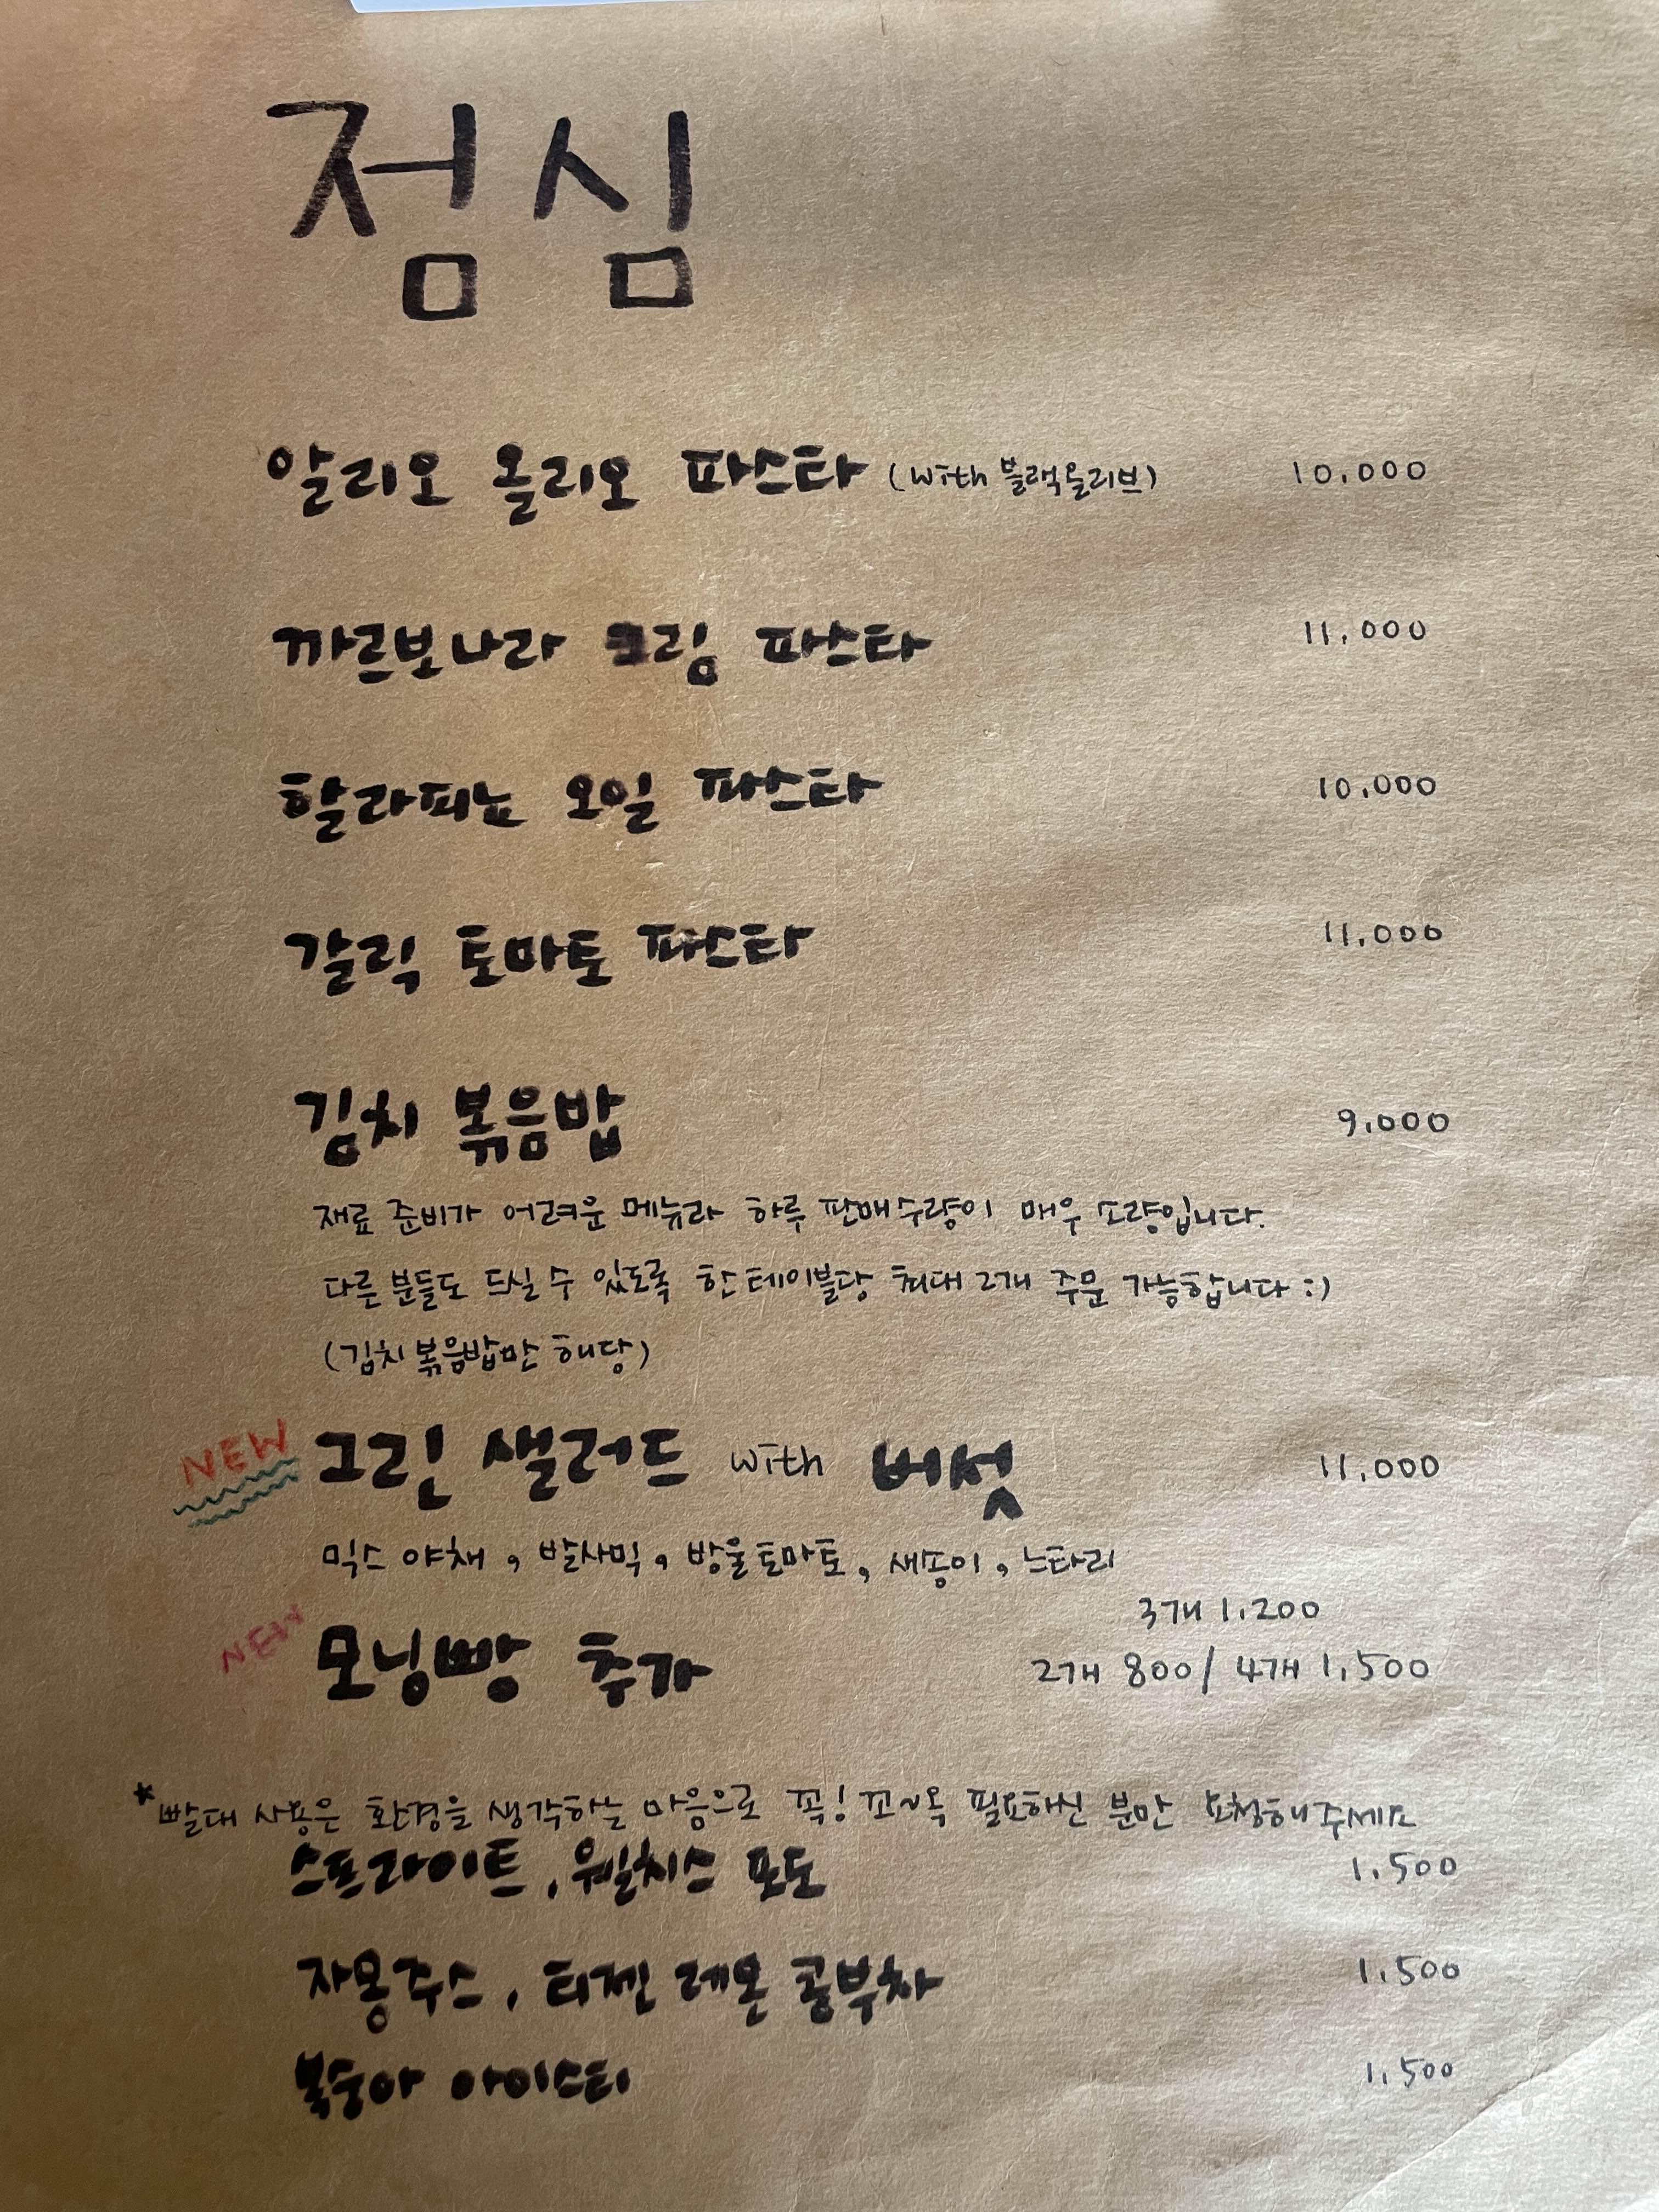 점심
알리오 올리오 파스타 (with 블랙올리브) 10,000
까르보나라 크림 파스타 11,000
할라피뇨 오일 파스타 10,000
갈릭 토마토 파스타 11,000
김치 볶음밥 9,000
재료 준비가 어려운 메뉴라 하루 판매수량이 매우 소량입니다.
다른 분들도 드실 수 있도록 한 테이블당 최대 2개 주문 가능합니다 :)
(김치볶음밥만 해당)
NEW 그린 샐러드 with 버섯 11,000
믹스 야채, 발사믹, 방울토마토, 새송이, 느타리
3개 1,200
NEW 모닝빵 추가 2개 800/ 4개 1,500
*빨대 사용은 환경을 생각하는 마음으로 꼭! 꼬~옥 필요하신 분만 요청해주세요
스프라이트, 웰치스 포도 1,500
자몽주스, 티젠 레몬 콤부차 1,500
복숭아 아이스티 1,500